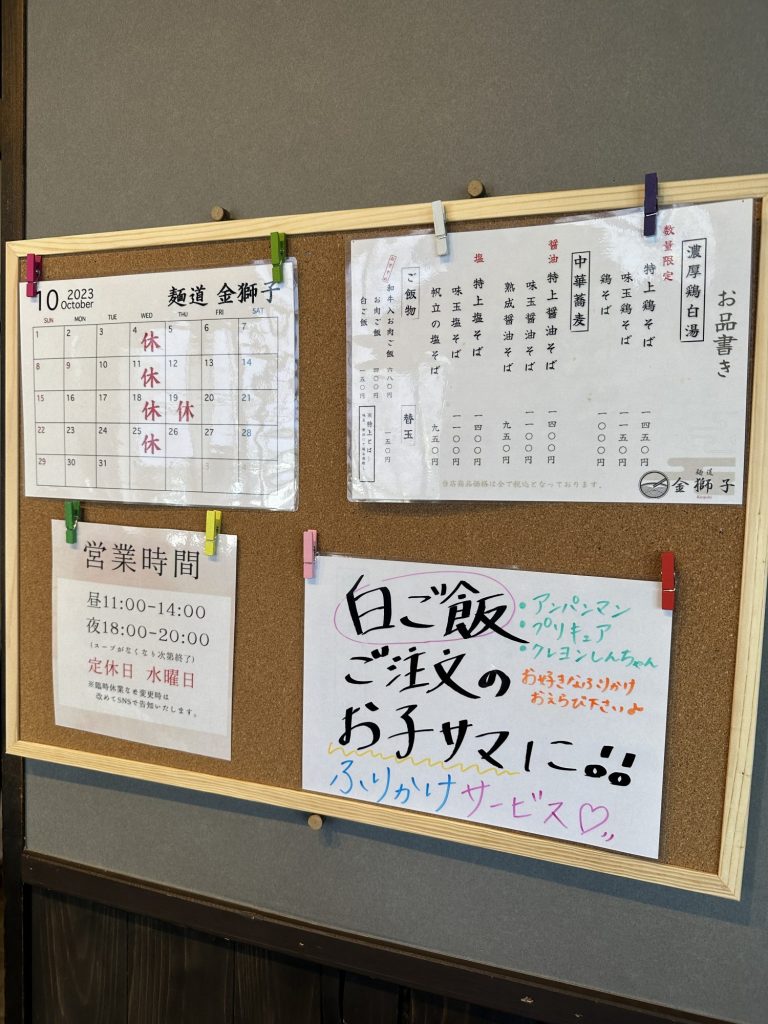 10 2023
October
麺道 金獅子
SUN MON TUE WED THU FRI SAT
1 2 3 4 5 6 7
休
8 9 10 11 12 13 14
休
15 16 17 18 19 20 21
休 休
22 23 24 25 26 27 28
休
29 30 31
お品書き
濃厚鶏白湯
数量限定
特上鶏そば 一四五〇円
味玉鶏そば 一一五〇円
鶏そば 一〇〇〇円
中華蕎麦
醤油 特上醤油そば 一四〇〇円
味玉醤油そば 一一〇〇円
熟成醤油そば 九五〇円
塩 特上塩そば 一四〇〇円
味玉塩そば 一一〇〇円
帆立の塩そば 九五〇円
ご飯物
和牛入お肉ご飯 六八〇円
お肉ご飯 四〇〇円
白ご飯 一五〇円
替玉 一五〇円
当店商品価格は全て税込となっております。
麺道
金獅子
営業時間
昼11:00-14:00
夜18:00-20:00
(スープがなくなり次第終了)
定休日 水曜日
※臨時休業など変更時は
改めてSNSで告知いたします。
白ご飯
ご注文の
お子サマに!!
ふりかけサービス♡
・アンパンマン
・プリキュア
・クレヨンしんちゃん
お好きなふりかけ
おえらび下さいよ